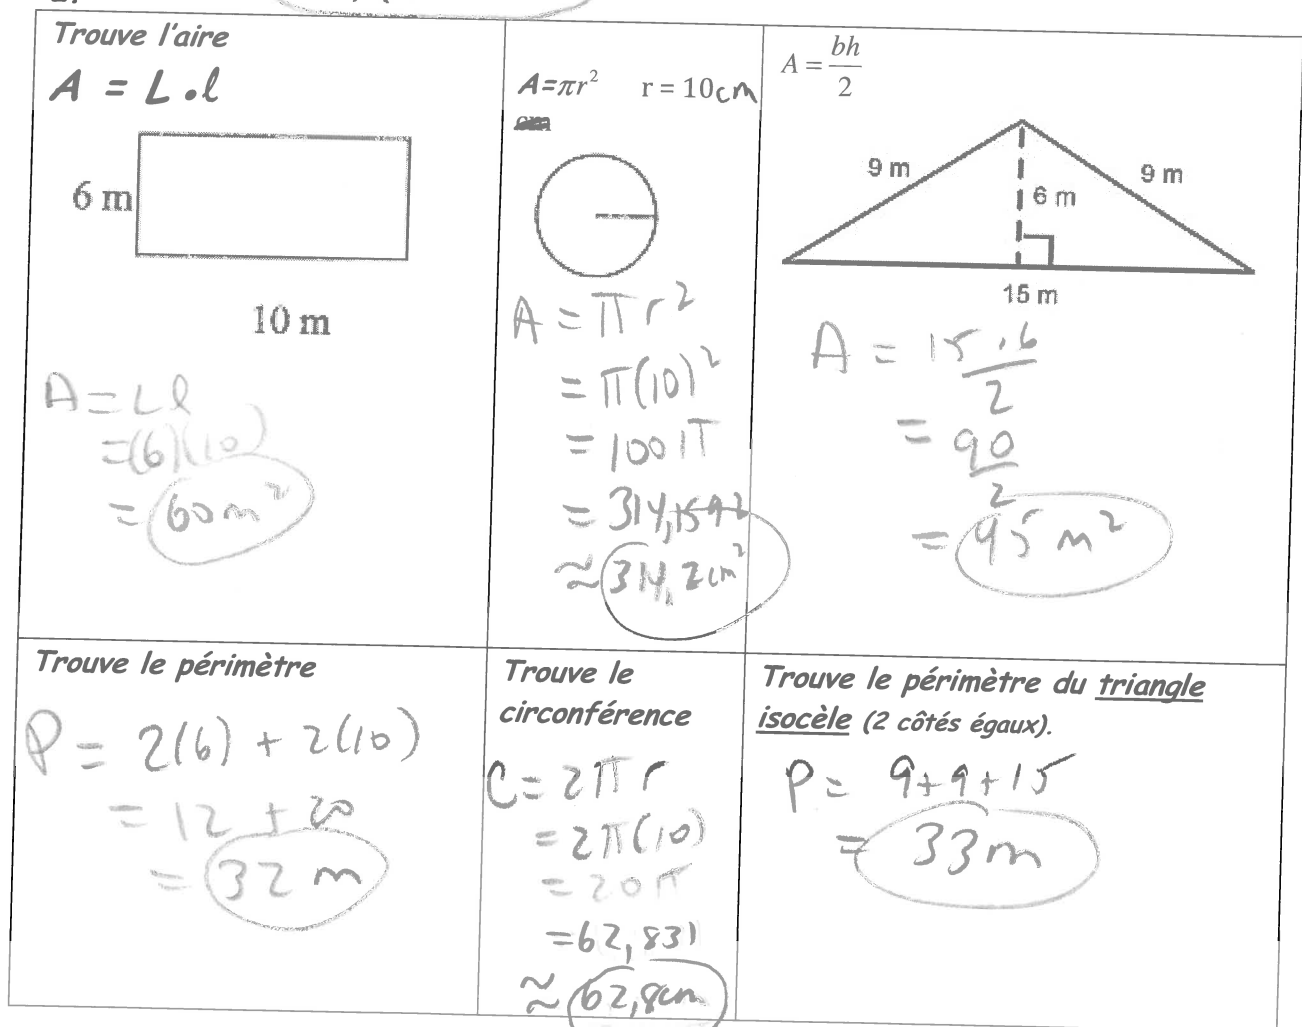 Trouve l'aire
A = L•l
6 m
10 m
A = Ll
=(6)(10)
= 60 m²
A=πr² r = 10cm
A = πr²
= π(10)²
= 100π
= 314,1592
≈ 314,2cm²
A = bh/2
9 m
9 m
6 m
15 m
A = 15.6/2
= 90/2
= 45 m²
Trouve le périmètre
P = 2(6) + 2(10)
= 12 + 20
= 32 m
Trouve le
circonférence
C = 2πr
= 2π(10)
= 20π
=62,831
≈ 62,8cm
Trouve le périmètre du triangle
isocèle (2 côtés égaux).
P = 9+9+15
= 33m